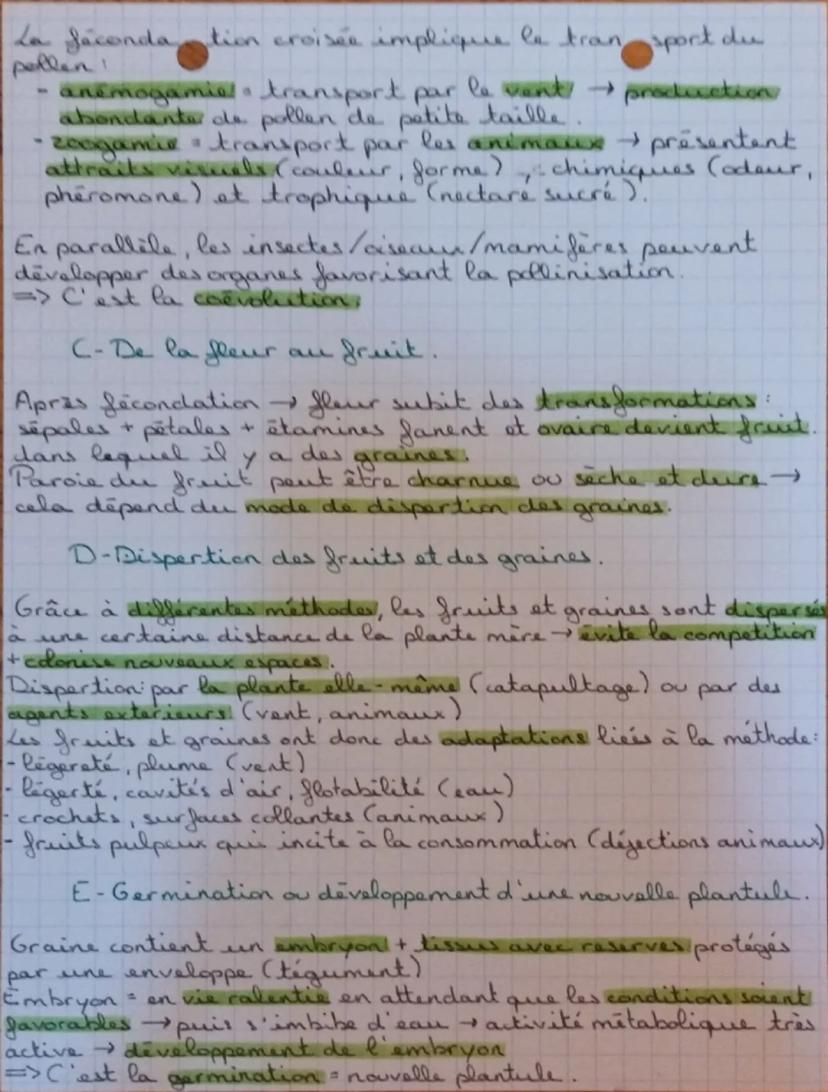 La féconda tion croisée implique le tran sport du
pollen :
- anémogamie = transport par le vent → production
abondante de pollen de petite taille.
- zoogamie = transport par les animaux → présentent
attraits visuels (couleur, forme), chimiques (odeur,
phéromone) et trophique (nectare sucré).
En parallèle, les insectes/oiseaux/mamifères peuvent
développer des organes favorisant la pollinisation.
=> C'est la coévolution.
C- De la fleur au fruit.
Après fécondation → fleur subit des transformations :
sépales + pétales + étamines fanent et ovaire devient fruit.
dans lequel il y a des graines.
Paroie du fruit peut être charnue ou sèche et dure →
cela dépend du mode de dispertion des graines.
D- Dispertion des fruits et des graines.
Grâce à différentes méthodes, les fruits et graines sont dispersés
à une certaine distance de la plante mère → évite la compétition
+ colonise nouveaux espaces.
Dispertion : par la plante elle-même (catapultage) ou par des
agents extérieurs (vent, animaux)
Les fruits et graines ont donc des adaptations liées à la méthode :
- légereté, plume (vent)
- légerté, cavités d'air, flotabilité (eau)
- crochets, surfaces collantes (animaux)
- fruits pulpeux qui incite à la consommation (déjections animaux)
E- Germination ou développement d'une nouvelle plantule.
Graine contient un embryon + tissus avec reserves protégés
par une enveloppe (tégument)
Embryon = en vie ralentie en attendant que les conditions soient
favorables → puis s'imbibe d'eau → activité métabolique très
active → développement de l'embryon
=> C'est la germination = nouvelle plantule.